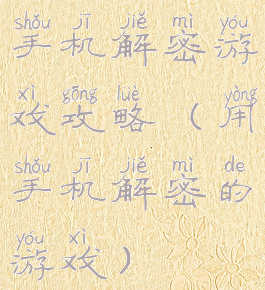 shǒu jī jiě mì yóu
手机解密游
xì gōng luè yòng
戏攻略（用
shǒu jī jiě mì de
手机解密的
yóu xì
游戏）